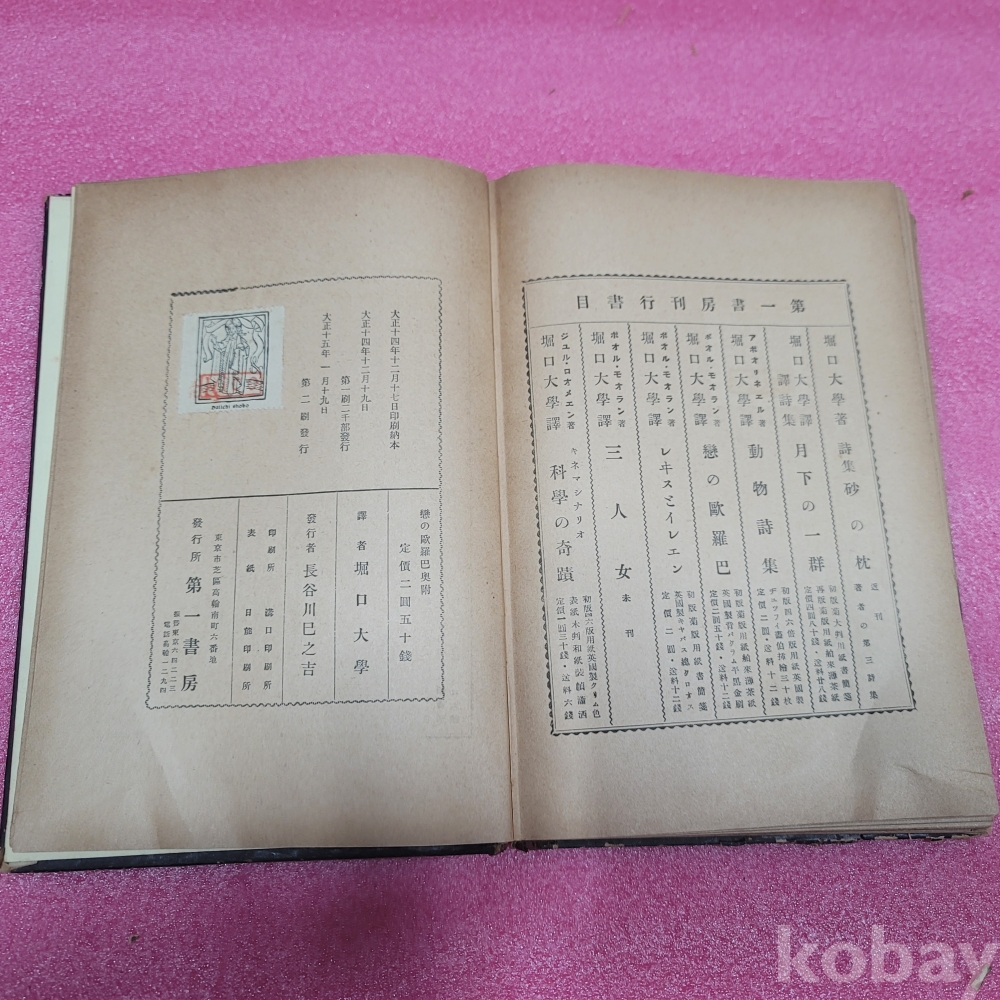 第一書房刊行書目
堀口大學著 詩集 砂の枕 近刊 著者の第三詩集
堀口大學譯 譯詩集 月下の一群 初版大判用紙書簡箋 再版藁版用紙舶來薄茶紙 定價四圓八十錢・送料廿八錢
アポオリネエル著 堀口大學譯 動物詩集 初版四六倍版用紙英國製 デユフイイ畫伯挿繪三十枚 定價二圓・送料十二錢
ポオル・モオラン著 堀口大學譯 戀の歐羅巴 初版藁版用紙舶來薄茶紙 英國製背バクラム平黒金刷 定價二圓五十錢・送料十二錢
ポオル・モオラン著 堀口大學譯 レヰスとイレエン 初版藁版用紙書簡箋 英國製キヤンバス總クロオス 定價二圓・送料十二錢
ポオル・モオラン著 堀口大學譯 三人女 未刊
ジユル・ロオメエン著 堀口大學譯 キネマシナリオ 科學の奇蹟 初版四六版用紙英國製クリム色 表紙木判和紙裝幀瀟洒 定價一圓三十錢・送料六錢
大正十四年十二月十七日印刷納本
大正十四年十二月十九日 第一刷二千部發行
大正十五年一月十九日 第二刷發行
Daiichi shobo
戀の歐羅巴奧附
定價二圓五十錢
譯者 堀口大學
發行者 長谷川巳之吉
印刷所 溝口印刷所
表紙 日能印刷所
東京市芝區高輪南町六番地
發行所 第一書房
振替東京六四二二三
電話高輪一二九四
kobay